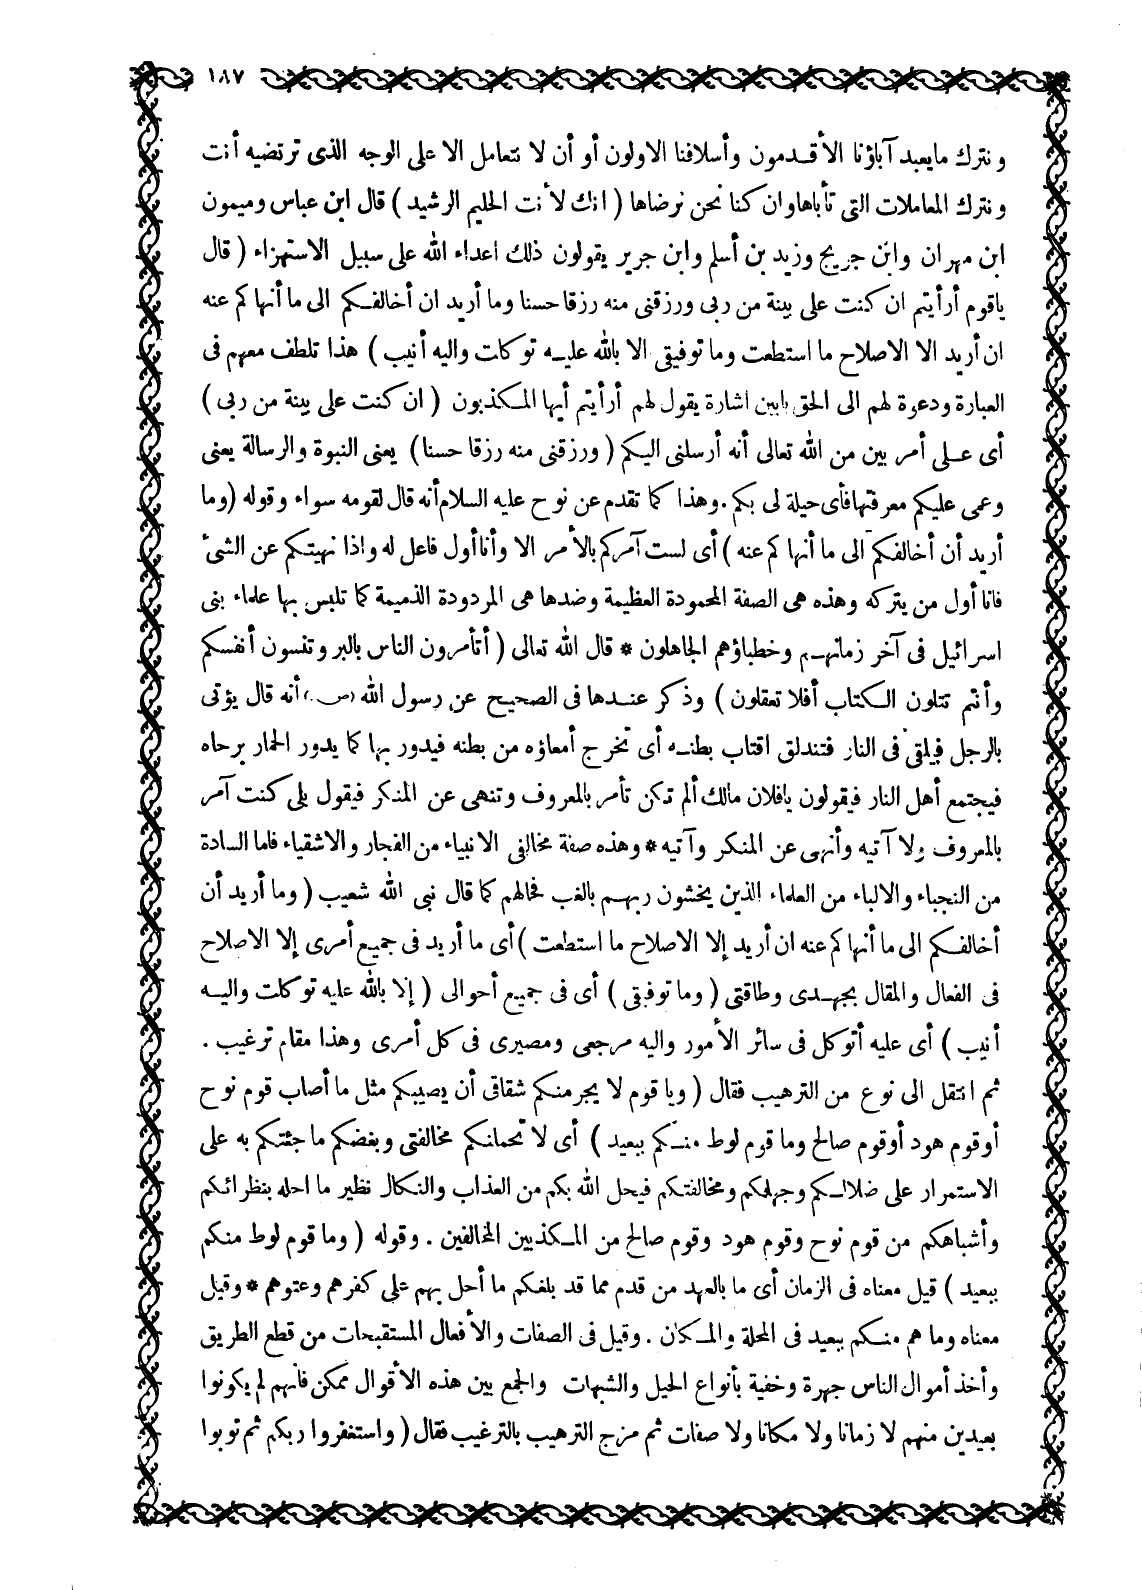 ١٨٧
ونترك مايعبد آباؤنا الأقدمون وأسلافنا الاولون أو أن لا نتعامل الا على الوجه الذى ترتضيه أنت
ونترك المعاملات التى تأباها وان كنا نحن نرضاها ( انك لأنت الحليم الرشيد ) قال ابن عباس وميمون
ابن مهران وابن جريج وزيد بن أسلم وابن جرير يقولون ذلك اعداء الله على سبيل الاستهزاء ( قال
ياقوم أرأيتم ان كنت على بينة من ربى ورزقنى منه رزقا حسنا وما أريد ان أخالفكم الى ما أنهاكم عنه
ان أريد الا الاصلاح ما استطعت وما توفيقى الا بالله عليه توكلت واليه أنيب ) هذا تلطف معهم فى
العبارة ودعوة لهم الى الحق بابين اشارة يقول لهم أرأيتم أيها المكذبون ( ان كنت على بينة من ربى )
أى على أمر بين من الله تعالى أنه أرسلنى اليكم ( ورزقنى منه رزقا حسنا ) يعنى النبوة والرسالة يعنى
وعمى عليكم معرفتها فأى حيلة لى بكم . وهذا كما تقدم عن نوح عليه السلام أنه قال لقومه سواء وقوله (وما
أريد أن أخالفكم الى ما أنهاكم عنه ) أى لست آمركم بالأمر الا وأنا أول فاعل له واذا نهيتكم عن الشىء
فانا أول من يتركه وهذه هى الصفة المحمودة العظيمة وضدها هى المردودة الذميمة كما تلبس بها علماء بنى
اسرائيل فى آخر زمانهم وخطباؤهم الجاهلون * قال الله تعالى ( أتأمرون الناس بالبر وتنسون أنفسكم
وأنتم تتلون الكتاب أفلا تعقلون ) وذكر عندها فى الصحيح عن رسول الله (ص.) أنه قال يؤتى
بالرجل فيلقى فى النار فتندلق اقتاب بطنه أى تخرج أمعاؤه من بطنه فيدور بها كما يدور الحمار برحاه
فيجتمع أهل النار فيقولون يافلان مالك ألم تكن تأمر بالمعروف وتنهى عن المنكر فيقول بلى كنت آمر
بالمعروف ولا آتيه وأنهى عن المنكر وآتيه * وهذه صفة مخالفى الانبياء من الفجار والاشقياء فاما السادة
من النجباء والالباء من العلماء الذين يخشون ربهم بالغب فحالهم كما قال نبى الله شعيب ( وما أريد أن
أخالفكم الى ما أنهاكم عنه ان أريد إلا الاصلاح ما استطعت ) أى ما أريد فى جميع أمرى إلا الاصلاح
فى الفعال والمقال بجهدى وطاقتى ( وما توفيقى ) أى فى جميع أحوالى ( إلا بالله عليه توكلت واليه
أنيب ) أى عليه أتوكل فى سائر الأمور واليه مرجعى ومصيرى فى كل أمرى وهذا مقام ترغيب .
ثم انتقل الى نوع من الترهيب فقال ( ويا قوم لا يجرمنكم شقاقى أن يصيبكم مثل ما أصاب قوم نوح
أو قوم هود أو قوم صالح وما قوم لوط منكم ببعيد ) أى لا تحملنكم مخالفتى وبغضكم ما جئتكم به على
الاستمرار على ضلالكم وجهلكم ومخالفتكم فيحل الله بكم من العذاب والنكال نظير ما احله بنظرائكم
وأشباهكم من قوم نوح وقوم هود وقوم صالح من المكذبين المخالفين . وقوله ( وما قوم لوط منكم
ببعيد ) قيل معناه فى الزمان أى ما بالعهد من قدم مما قد بلغكم ما أحل بهم على كفرهم وعتوهم * وقيل
معناه وما هم منكم ببعيد فى المحلة والمكان . وقيل فى الصفات والأفعال المستقبحات من قطع الطريق
وأخذ أموال الناس جهرة وخفية بأنواع الحيل والشبهات والجمع بين هذه الاقوال ممكن فانهم لم يكونوا
بعيدين منهم لا زمانا ولا مكانا ولا صفات ثم مزج الترهيب بالترغيب فقال ( واستغفروا ربكم ثم توبوا